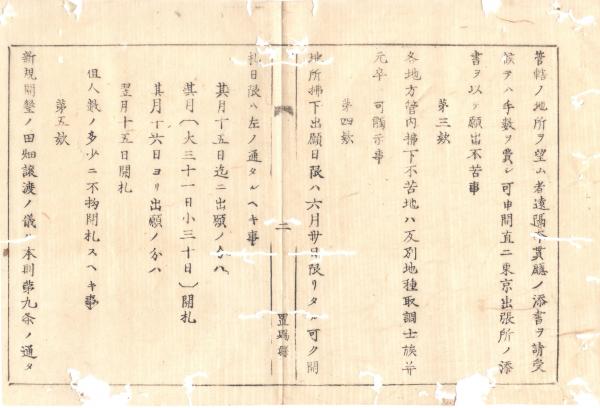 管轄ノ地所ヲ望ム者遠隔本貫廳ノ添書ヲ請受
候テハ手数ヲ費シ可申間直ニ東京出張所ノ添
書ヲ以テ願出不苦事
第三欵
各地方管内拂下不苦地ハ反別地種取調士族并
元卒可觸示事
第四欵
地所拂下出願日限ハ六月廿日限リタル可ク開
札日限ハ左ノ通タルヘキ事
二
置賜縣
其月十五日迄ニ出願ノ分ハ
其月（大三十一日小三十日）開札
其月十六日ヨリ出願ノ分ハ
翌月十五日開札
但人数ノ多少ニ不拘開札スヘキ事
第五欵
新規開墾ノ田畑譲渡ノ儀ハ本則第九条ノ通タ